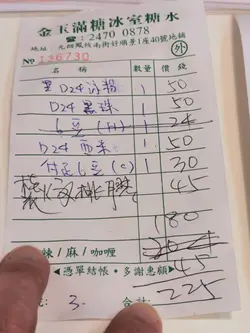 金玉滿糖冰室糖水
☎：2470 0878
地址 元朗鳳攸南街好順景1座40號地鋪
外
No 136730
名稱 數量 價錢
D24冰粉 1 50
D24黑珠 1 50
6豆(H) 1 24
D24西米 1 50
6豆(c) 1 30
桃膠 45
180
辣/麻/咖喱
45
◀憑單結帳·多謝惠顧▶
3. 合計 225